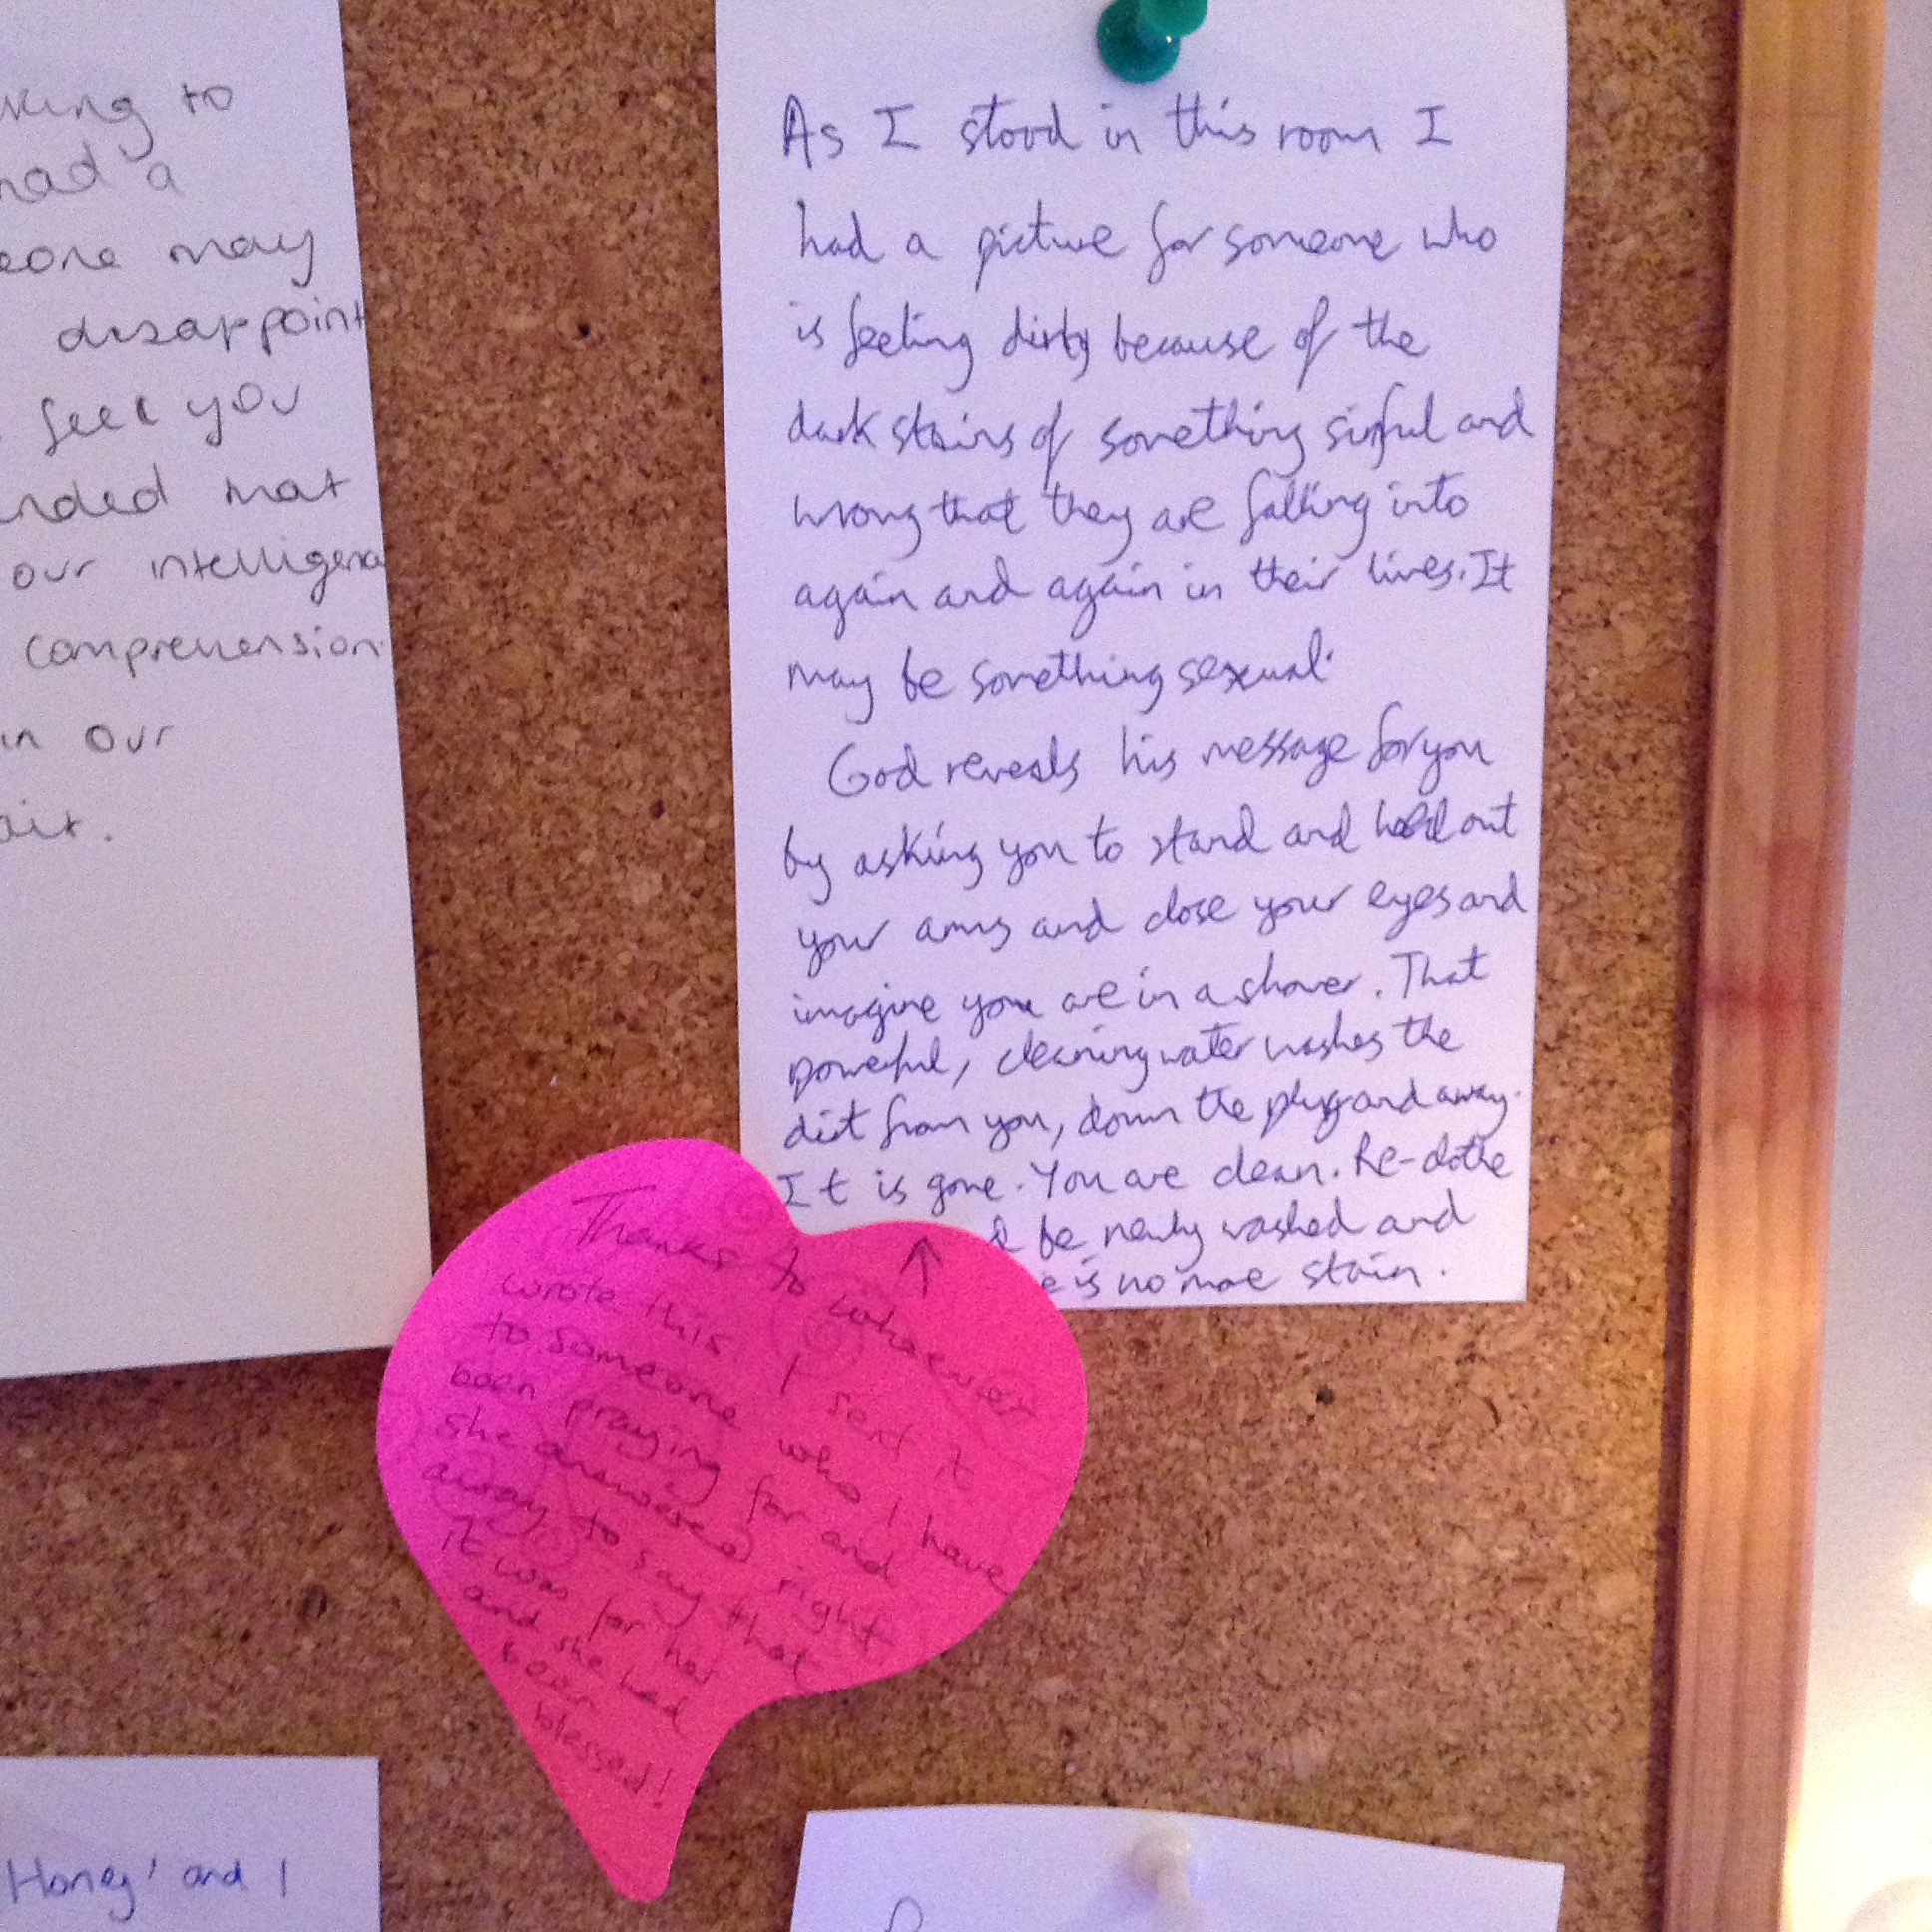 king to
had a
eone may
disappoint
feel you
nded mat
our intelligence
comprehension
in our
ait.
As I stood in this room I
had a picture for someone who
is feeling dirty because of the
dark stains of something sinful and
wrong that they are falling into
again and again in their lives. It
may be something sexual.
God reveals his message for you
by asking you to stand and hold out
your arms and close your eyes and
imagine you are in a shower. That
powerful, cleaning water washes the
dirt from you, down the plug and away.
It is gone. You are clean. Re-clothe
be newly washed and
e is no more stain.
Thanks to whoever
wrote this. I sent it
to someone who I have
been praying for and
she answered right
away to say that
it was for her
and she had
been
blessed!
Honey' and I